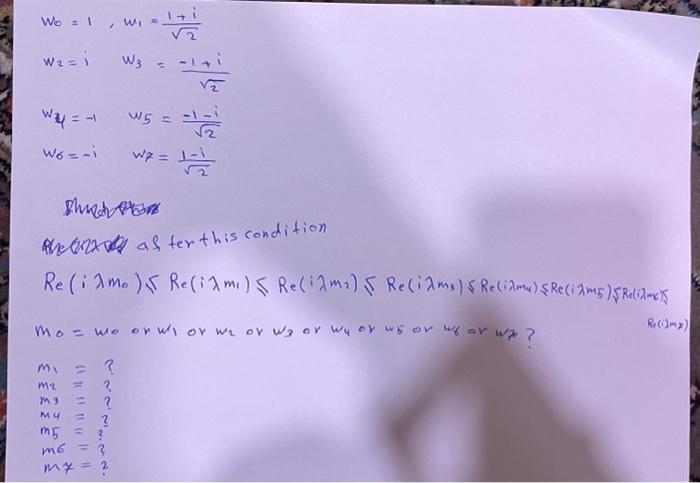 w0 = 1 , w1 = 1+i/√2
w2 = i w3 = -1+i/√2
w4 = -1 w5 = -1-i/√2
w6 = -i w7 = 1-i/√2
as fter this condition
Re(iλm0) ≤ Re(iλm1) ≤ Re(iλm2) ≤ Re(iλm3) ≤ Re(iλm4) ≤ Re(iλm5) ≤ Re(iλm6) ≤
Re(iλm7)
m0 = w0 or w1 or w2 or w3 or w4 or w5 or w6 or w7 ?
m1 = ?
m2 = ?
m3 = ?
m4 = ?
m5 = ?
m6 = ?
m7 = ?